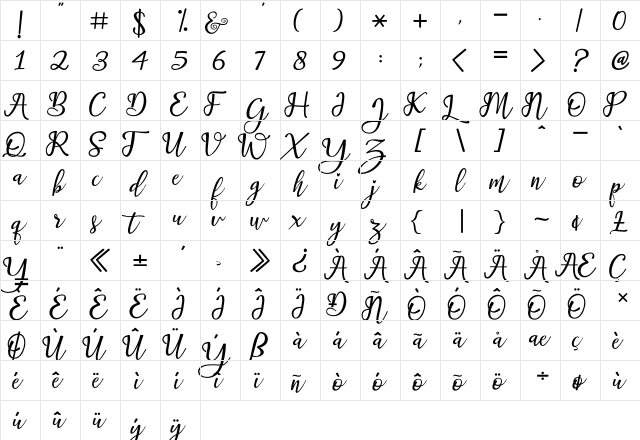 ! " # $ % & ' ( ) * + , - . / 0
1 2 3 4 5 6 7 8 9 : ; < = > ? @
A B C D E F G H I J K L M N O P
Q R S T U V W X Y Z [ \ ] ^ _ `
a b c d e f g h i j k l m n o p
q r s t u v w x y z { | } ~ ¢ £
¥ ¨ « ± ´ ¸ » ¿ À Á Â Ã Ä Å Æ Ç
È É Ê Ë Ì Í Î Ï Ð Ñ Ò Ó Ô Õ Ö ×
Ø Ù Ú Û Ü Ý ß à á â ã ä å æ ç è
é ê ë ì í î ï ñ ò ó ô õ ö ÷ ø ù
ú û ü ý ÿ